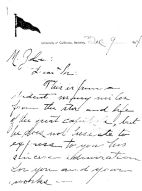 University of California, Berkeley, Dec 9
Dear Sir:
This is from a
student many miles
from the star and
of the great but
he does not hesitate to
express to you his
sincere admiration
for you and your
works —